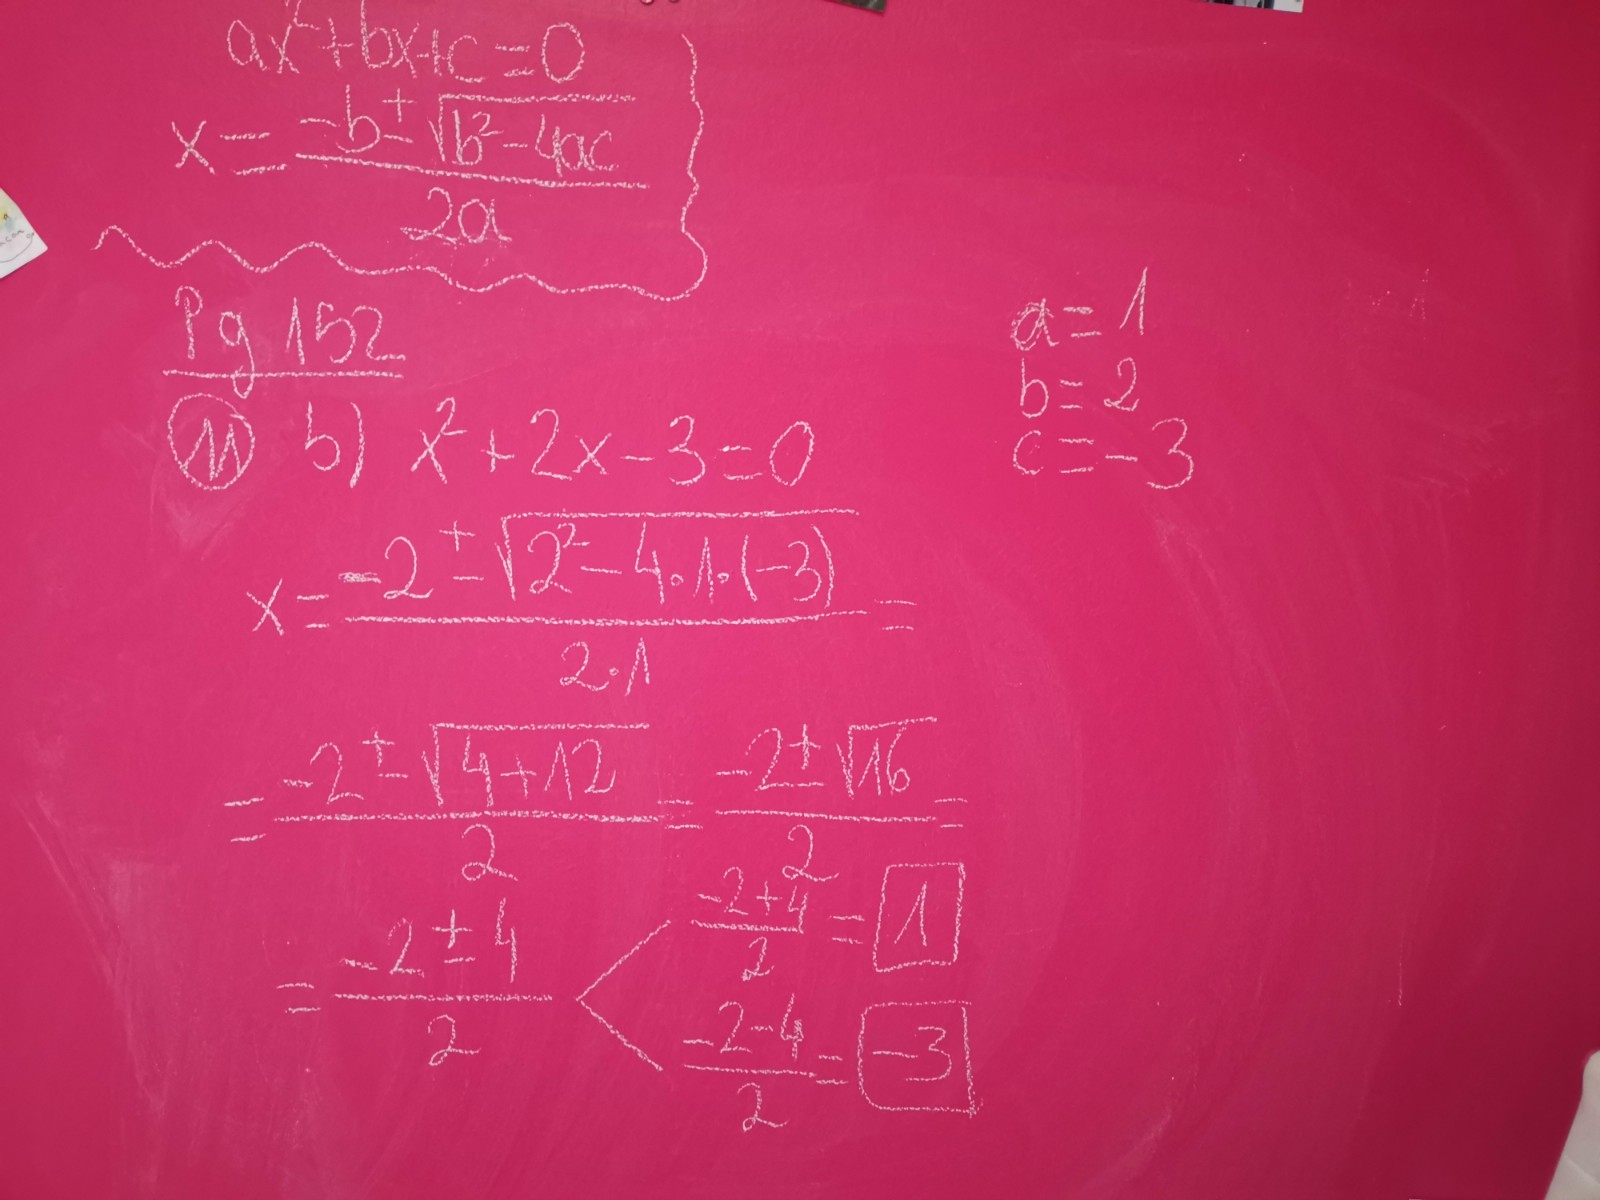 ax²+bx+c=0
x = (-b ± √(b²-4ac)) / 2a
Pg 152
a=1
b=2
c=-3
11 b) x²+2x-3=0
x = (-2 ± √(2²-4·1·(-3))) / 2·1 =
= (-2 ± √(4+12)) / 2 = (-2 ± √16) / 2 =
= (-2 ± 4) / 2
(-2+4) / 2 = 1
(-2-4) / 2 = -3